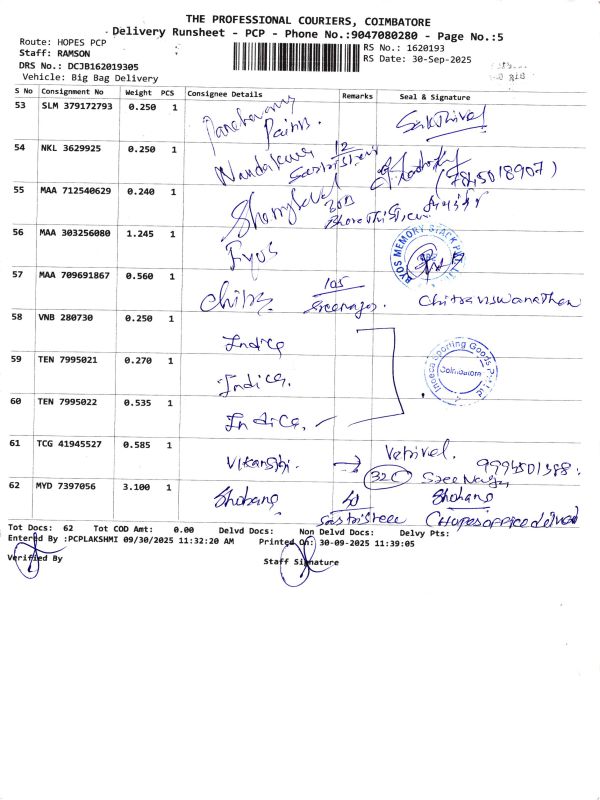 THE PROFESSIONAL COURIERS, COIMBATORE
Delivery Runsheet - PCP - Phone No.:9047080280 - Page No.:5
Route: HOPES PCP
Staff: RAMSON
DRS No.: DCJB162019305
Vehicle: Big Bag Delivery
RS No.: 1620193
RS Date: 30-Sep-2025
S No Consignment No Weight PCS Consignee Details Remarks Seal & Signature
53 SLM 379172793 0.250 1 Sakthivel
Paints.
54 NKL 3629925 0.250 1 Nandakumar 12
(7845018907)
55 MAA 712540629 0.240 1
56 MAA 303256080 1.245 1 Fyos
57 MAA 709691867 0.560 1 Chitra 105 Chitraviswanathan
Sreenagar.
58 VNB 280730 0.250 1 Indica
59 TEN 7995021 0.270 1 Indica.
Coimbatore
60 TEN 7995022 0.535 1 Indica.
61 TCG 41945527 0.585 1 Vetrivel.
32C Sree Nagar 9994501388
62 MYD 7397056 3.100 1 Shobana Shobana
Tot Docs: 62 Tot COD Amt: 0.00 Delvd Docs: Non Delvd Docs: Delvy Pts:
Entered By :PCPLAKSHMI 09/30/2025 11:32:20 AM Printed On: 30-09-2025 11:39:05
Verified By
Staff Signature